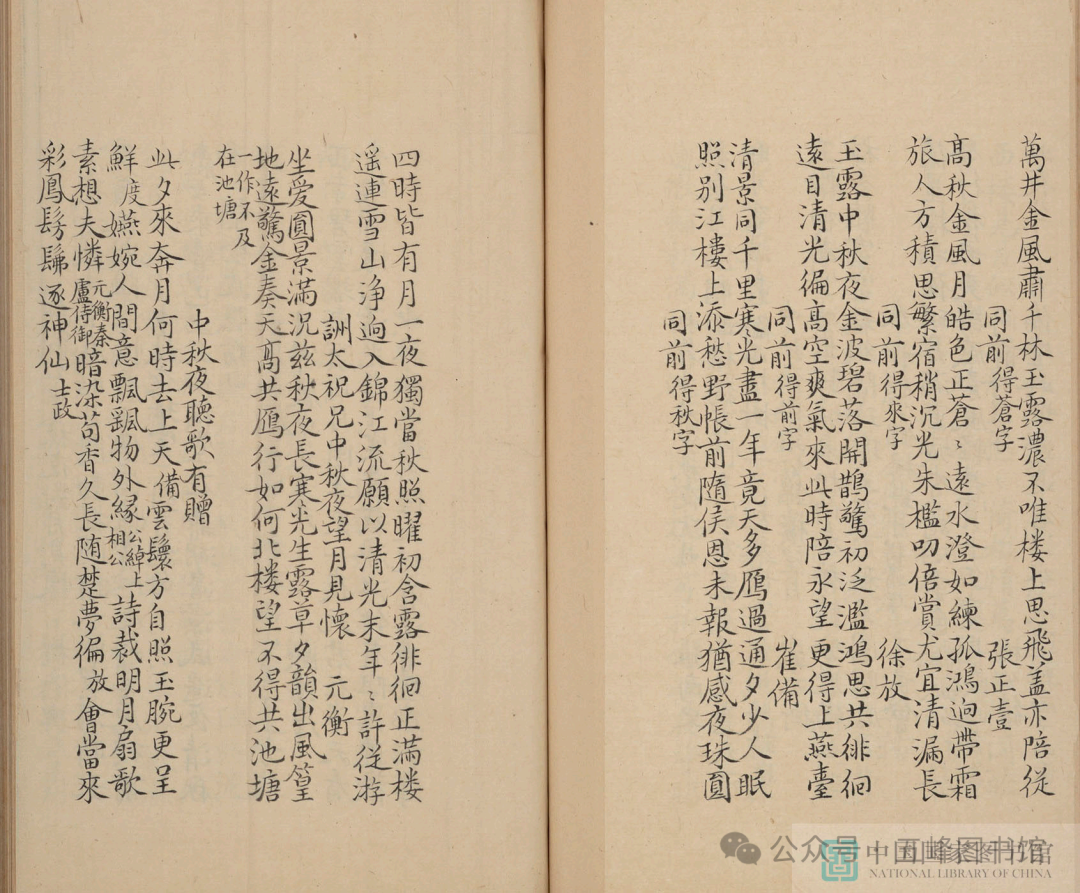 萬井金風肅千林玉露濃不唯楼上思飛盖亦陪從
同前得蒼字 張正壹
髙秋金風月皓色正蒼〻遠水澄如練孤鴻逈帶霜
旅人方積思繁宿稍沉光朱檻叨倍賞尤宜清漏長
同前得來字 徐放
玉露中秋夜金波碧落開鵲驚初泛濫鴻思共徘徊
遠目清光徧髙空爽氣來此時陪永望更得上燕臺
同前得前字 崔備
清景同千里寒光盡一年竟天多鴈過通夕少人眠
照别江樓上添愁野帳前隨侯恩未報猶感夜珠圓
同前得秩字
四時皆有月一夜獨當秋照曜初含露徘徊正滿楼
遥連雪山浄逈入錦江流願以清光末年〻許從游
訓太祝兄中秋夜望月見懷 元衡
坐愛圓景滿況兹秋夜長寒光生露草夕韻出風篁
地遠驚金奏天髙共鴈行如何北楼望不得共池塘
一作不及
在池塘
中秋夜聽歌有贈
此夕來奔月何時去上天備雲鬟方自照玉腕更呈
鮮度嬿婉人間意飄飖物外縁公綽上相公詩裁明月扇歌
素想夫憐元衡奏盧侍御暗染荀香久長随楚夢徧放會當來
彩鳳髣髴逐神仙士政
公众号
中五峰图书馆
NATIONAL LIBRARY OF CHINA